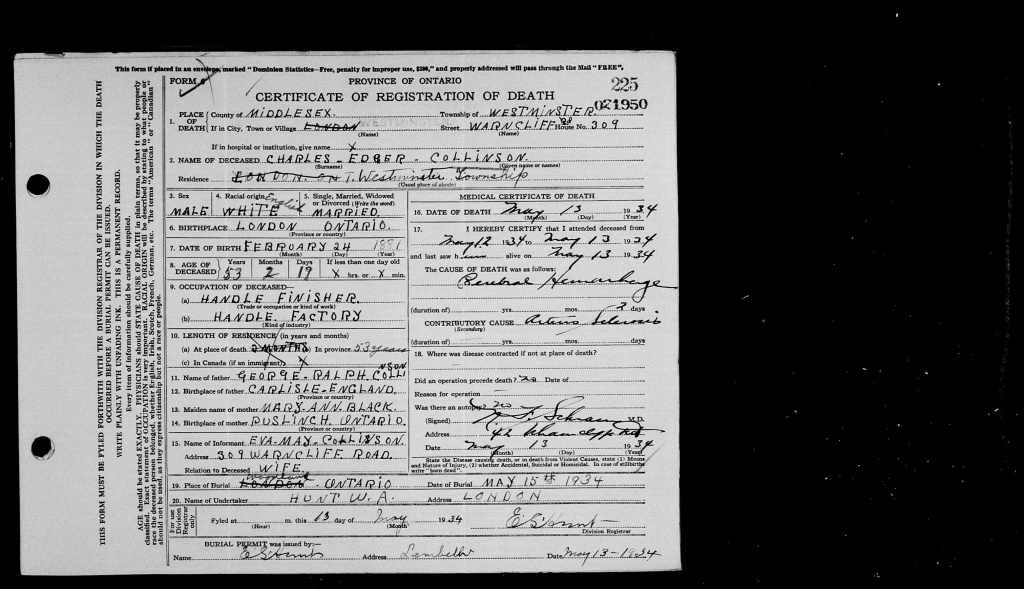 This form if placed in an envelope, marked "Dominion Statistics—Free, penalty for improper use, $300," and properly addressed will pass through the Mail "FREE".
FORM 6
PROVINCE OF ONTARIO
225
CERTIFICATE OF REGISTRATION OF DEATH
021950
1. PLACE OF DEATH
County of MIDDLESEX. Township of WESTMINSTER.
If in City, Town or Village LONDON WESTMINSTER Street WARNCLIFF RD House No. 309
(Name) (Name)
If in hospital or institution, give name X
2. NAME OF DECEASED CHARLES - EDGER - COLLINSON.
(Surname) (Given name or names)
Residence LONDON. ONT. Westminster Township
(Usual place of abode)
3. Sex MALE
4. Racial origin English WHITE
5. Single, Married, Widowed or Divorced (Write the word) MARRIED.
6. BIRTHPLACE LONDON ONTARIO.
(Province or country)
7. DATE OF BIRTH FEBRUARY 24 1881
(Month) (Day) (Year)
8. AGE OF DECEASED
Years Months Days If less than one day old
53 2 19 X hrs. or X min.
9. OCCUPATION OF DECEASED—
(a) HANDLE FINISHER.
(Trade or occupation or kind of work)
(b) HANDLE. FACTORY
(Kind of industry)
10. LENGTH OF RESIDENCE (in years and months)
(a) At place of death 2 MONTHS (b) In province 53 years
(c) In Canada (if an immigrant) X
11. Name of father GEORGE - RALPH. COLLINSON
12. Birthplace of father CARLISLE - ENGLAND.
(Province or country)
13. Maiden name of mother MARY. ANN. BLACK.
14. Birthplace of mother PUSLINCH. ONTARIO.
(Province or country)
15. Name of Informant EVA - MAY - COLLINSON.
Address 309 WARNCLIFF ROAD.
Relation to Deceased WIFE.
MEDICAL CERTIFICATE OF DEATH
16. DATE OF DEATH May 13 1934
(Month) (Day) (Year)
17. I HEREBY CERTIFY that I attended deceased from
May 12 1934 to May 13 1934
and last saw him alive on May 13 1934
The CAUSE OF DEATH was as follows:
Cerebral Hemorrhage
(duration of) yrs. mos. 2 days
CONTRIBUTORY CAUSE Arterio Sclerosis
(Secondary)
(duration of) yrs. mos. days
18. Where was disease contracted if not at place of death?
Did an operation precede death? no Date of
Reason for operation
Was there an autopsy? no
(Signed) M.D.
Address
Date May 13 1934
(Month) (Day) (Year)
State the Disease causing death, or in death from Violent Causes, state (1) Means and Nature of Injury, (2) whether Accidental, Suicidal or Homicidal. In case of stillbirths write "born dead".
19. Place of Burial LONDON - ONTARIO Date of Burial MAY 15th 1934
20. Name of Undertaker HUNT W. A. Address LONDON
For use Division Registrar only
Fyled at m. this 13 day of May 1934
(Hour) (Month)
E S Hunt
Division Registrar
BURIAL PERMIT was issued by:—
Name E S Hunt Address Lambeth Date May 13 - 1934
THIS FORM MUST BE FYLED FORTHWITH WITH THE DIVISION REGISTRAR OF THE DIVISION IN WHICH THE DEATH
OCCURRED BEFORE A BURIAL PERMIT CAN BE ISSUED.
WRITE PLAINLY WITH UNFADING INK. THIS IS A PERMANENT RECORD.
Every item of information should be carefully supplied.
AGE should be stated EXACTLY. PHYSICIANS should STATE CAUSE OF DEATH in plain terms, so that it may be properly
classified. Exact statement of OCCUPATION is very important. RACIAL ORIGIN will be described by stating to what people or
race the deceased person belonged, whether English, Irish, Scotch, French, German, etc. The terms "American" or "Canadian"
should not be used, as they express citizenship but not a race or people.